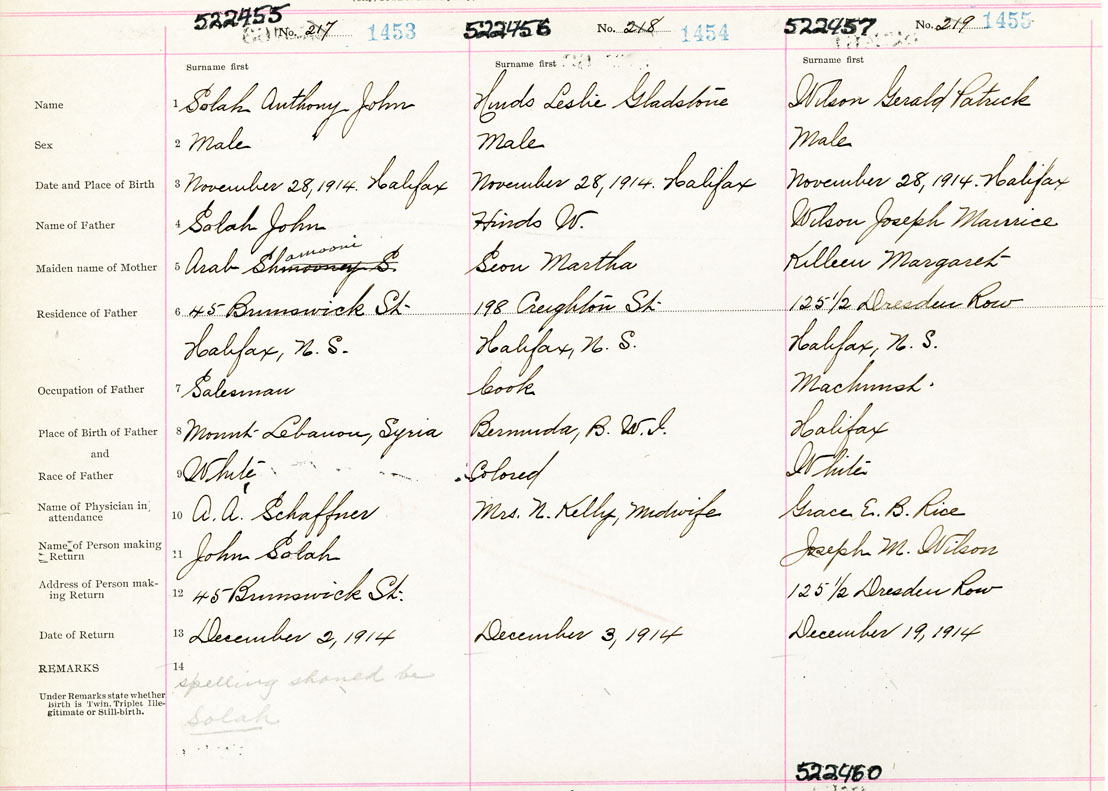 522455 No. 217 1453
522456 No. 218 1454
522457 No. 219 1455
Surname first Surname first Surname first
Name 1 Solah Anthony John Hinds Leslie Gladstone Wilson Gerald Patrick
Sex 2 Male Male Male
Date and Place of Birth 3 November 28, 1914. Halifax November 28, 1914. Halifax November 28, 1914. Halifax
Name of Father 4 Solah John Hinds W. Wilson Joseph Maurice
amooni
Maiden name of Mother 5 Arab Shmooney S. Seon Martha Killeen Margaret
Residence of Father 6 45 Brunswick St. 198 Creighton St 125 1/2 Dresden Row
Halifax, N. S. Halifax, N. S. Halifax, N. S.
Occupation of Father 7 Salesman Cook Machinist.
Place of Birth of Father 8 Mount Lebanon, Syria Bermuda, B. W. I. Halifax
and
Race of Father 9 White Colored White
Name of Physician in attendance 10 A. A. Schaffner Mrs. N. Kelly, Midwife Grace E. B. Rice
Name of Person making Return 11 John Solah Joseph M. Wilson
Address of Person mak-
ing Return 12 45 Brunswick St. 125 1/2 Dresden Row
Date of Return 13 December 2, 1914 December 3, 1914 December 19, 1914
REMARKS 14
spelling should be
Solah
Under Remarks state whether
Birth is Twin, Triplet Ille-
gitimate or Still-birth.
522460